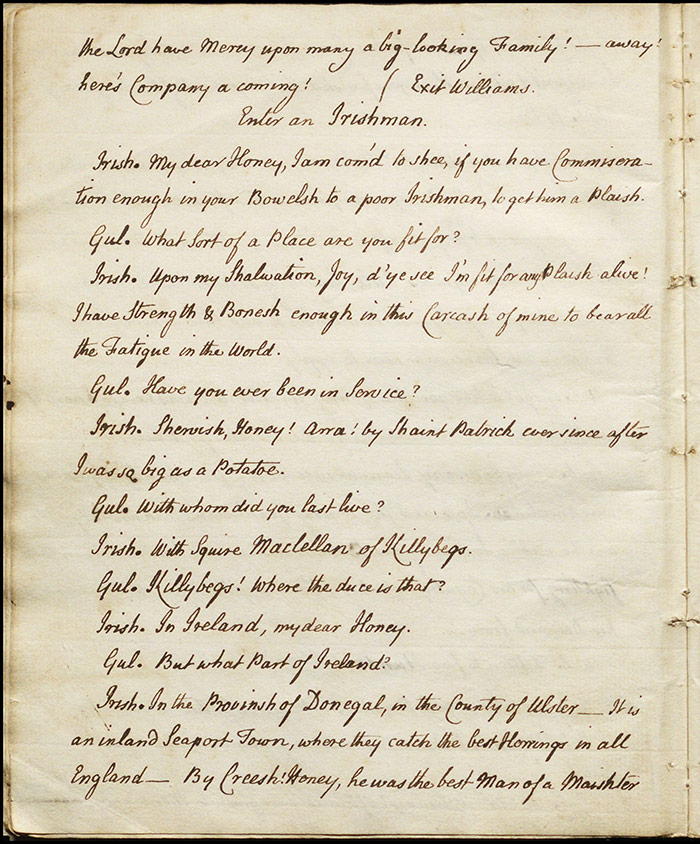 the Lord have Mercy upon many a big-looking Family! — away!
here's Company a coming! ( Exit Williams.
Enter an Irishman.
Irish. My dear Honey, I am com'd to shee, if you have Commisera-
tion enough in your Bowelsh to a poor Irishman, to get him a Plaish.
Gul. What Sort of a Place are you fit for?
Irish. Upon my Shalwation, Joy, d'ye see I'm fit for any Plaish alive!
I have Strength & Bonesh enough in this Carcash of mine to bear all
the Fatigue in the World.
Gul. Have you ever been in Service?
Irish. Shervish, Honey! Arra! by Shaint Patrick ever since after
I was so big as a Potatoe.
Gul. With whom did you last live?
Irish. With Squire Maclellan of Killybegs.
Gul. Killybegs! Where the duce is that?
Irish. In Ireland, my dear Honey.
Gul. But what Part of Ireland?
Irish. In the Provinsh of Donegal, in the County of Ulster — It is
an inland Seaport Town, where they catch the best Herrings in all
England — By Creesh! Honey, he was the best Man of a Maishter